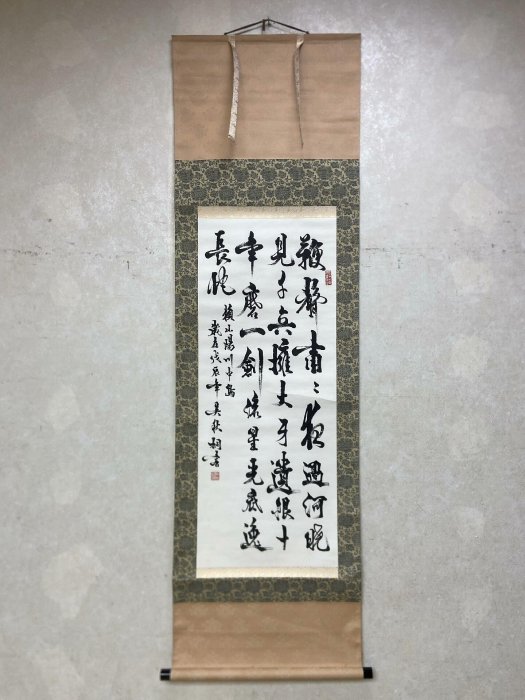 鞭聲肅〻夜過河曉
見千兵擁大牙遺恨十
年磨一劍流星光底逸
長蛇
頼山陽川中島
歲在戊辰年書